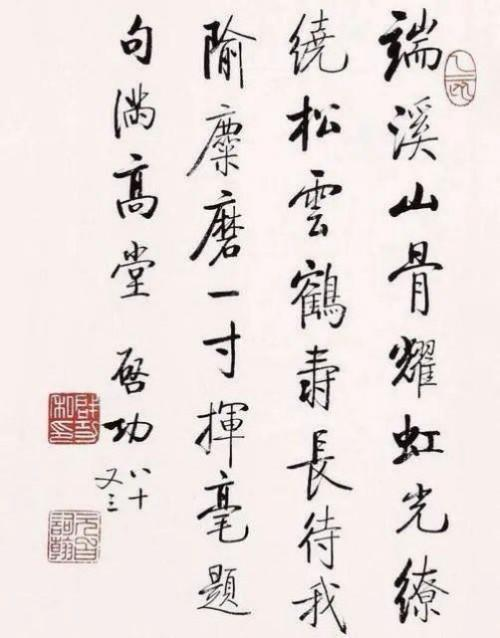 端溪山骨耀虹光繚
繞松雲鶴壽長待我
隃麋磨一寸揮毫題
句滿高堂 啓功 八十
又三